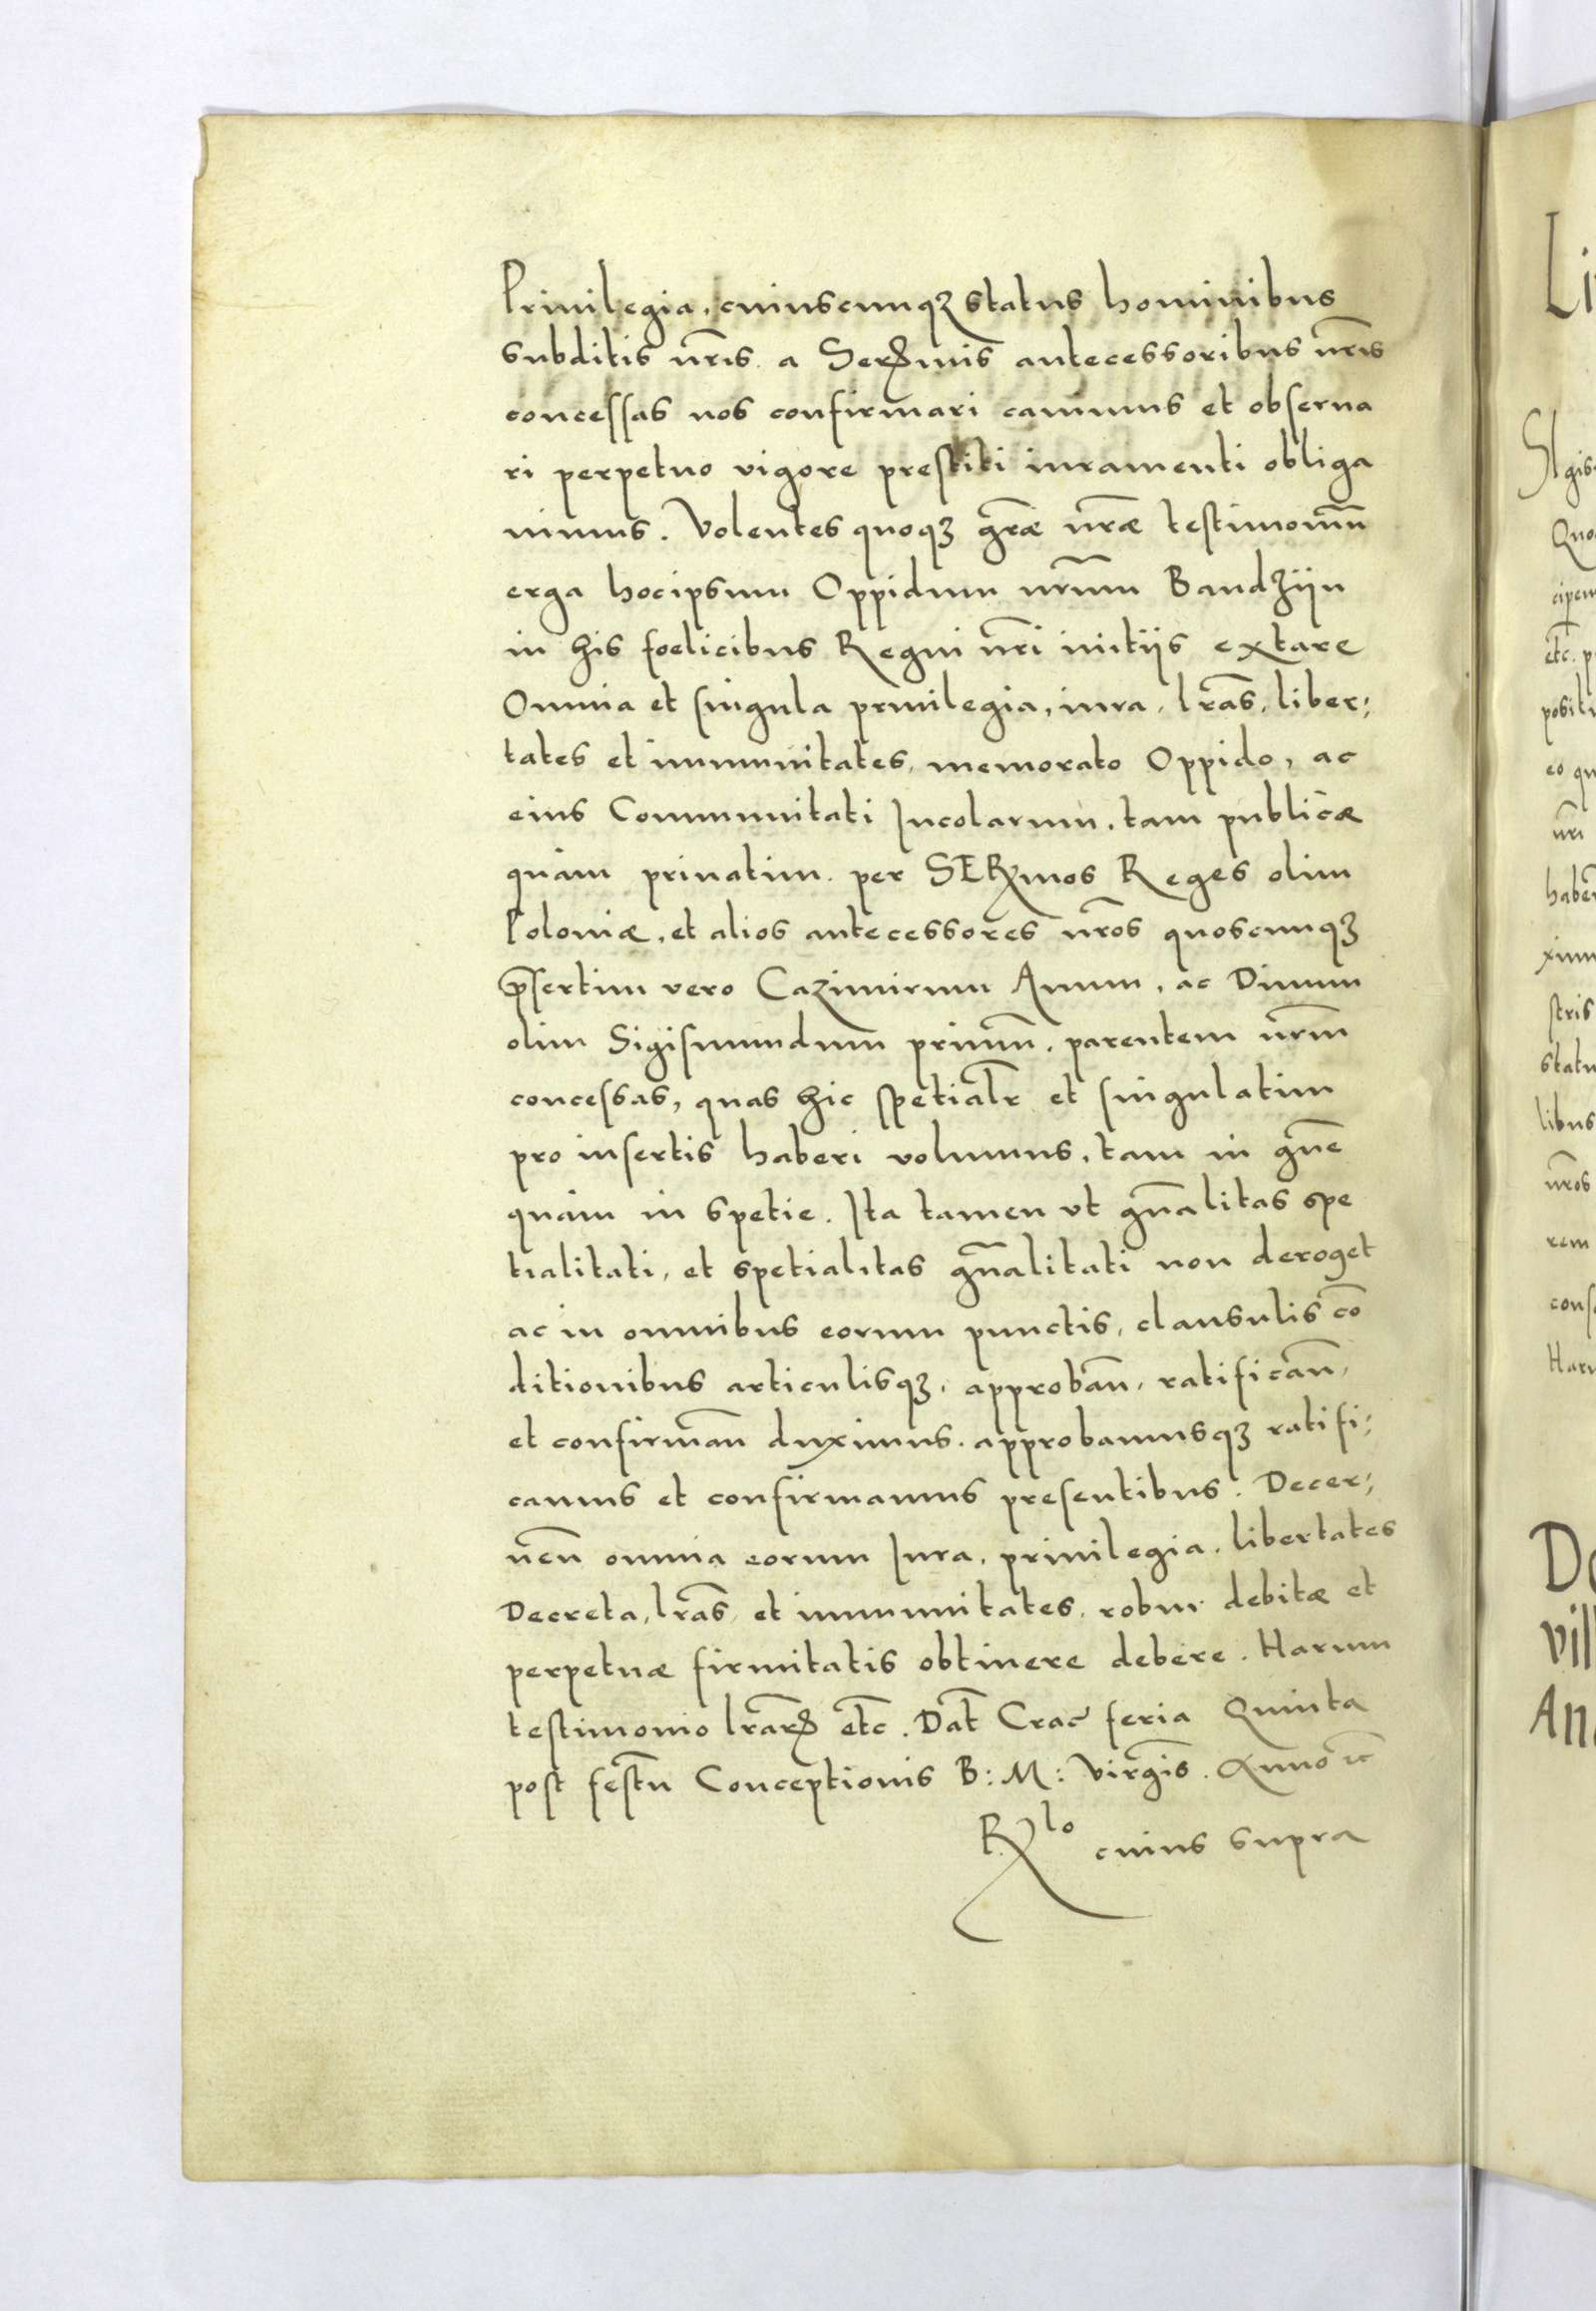 Priuilegia, cuiuscunqꝫ status hominibus
subditis nr̃is a Serꝫmis antecessoribus nr̃is
concessas nos confirmari cauimus et obserua
ri perpetuo vigore prestiti iuramenti obliga
uimus. Volentes quoqꝫ gr̃æ nr̃æ testimoniũ
erga hocipsum Oppidum nr̃um Bandzijn
in his foelicibus Regni nr̃i initijs extare
Omnia et singula priuilegia, iura, lr̃as, liber;
tates et immunitates, memorato Oppido, ac
eius Communitati Incolarum, tam publicæ
quàm priuatim per SERꝫmos Reges olim
Poloniæ, et alios antecessores nr̃os quoscunqꝫ
p̃sertim vero Cazimirum Auum, ac Diuum
olim Sigismundum primũ, parentem nr̃m
concessas, quas hic spetialr̃ et singulatim
pro insertis haberi volumus, tam in gñe
quàm in spetie. Ita tamen vt gñalitas spe
tialitati, et spetialitas gñalitati non deroget
ac in omnibus eorum punctis, clausulis cõ
ditionibus articulisqꝫ, approbañ, ratificañ,
et confirmañ duximus. approbamusqꝫ ratifi;
camus et confirmamus presentibus. Decer;
neñ omnia eorum Iura, priuilegia, libertates
Decreta, lr̃as et immunitates, robur debitæ et
perpetuæ firmitatis obtinere debere. Harum
testimonio lr̃arꝫ etc̃. Dat̃ Crac̃ feria Quinta
post festũ Conceptionis B: M: Virg̃is. Anno ut̃
Rꝫlo cuius supra
Li
SIgis
Quo
cipem
etc̃. p
positi
eo qu
nr̃i
haber
xim
stris
statu
libus
nr̃os
rem
cons
Haru
De
vill
Ann